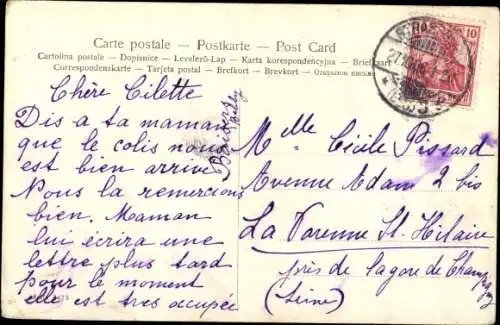 Carte postale – Postkarte – Post Card
Cartolina postale – Dopisnice – Levelező-Lap – Karta korespondencyjna – Briefkaart
Correspondenzkarte – Tarjeta postal – Brefkort – Brevkort –
10
Chère Cilette
Dis a ta maman
que le colis nous
est bien arrivé
Nous la remercions
bien. Maman
lui écrira une
lettre plus tard
pour le moment
elle est très occupée
Baisers
Melle Cécile Pissard
Avenue Adam 2 bis
La Varenne St. Hilaire
près de la gare de Champigny
(Seine)